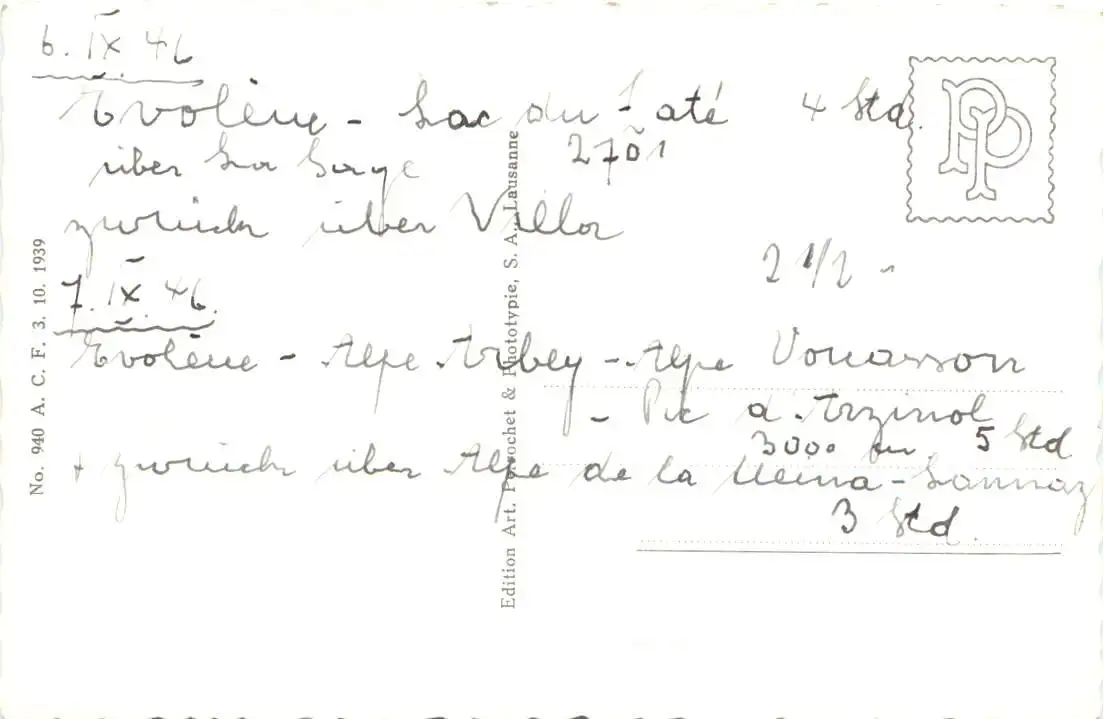 6. IX 46
Evolène - Lac du - até 4 Std.
2701
über La Sage
zurück über Villa
2 1/2 -
7. IX 46.
Evolène - Alpe Arbey - Alpe Vouasson
- Pic d'Arzinol
3000 m, 5 Std
+ zurück über Alpe de la Meina - Lannaz
3 Std.
No. 940 A. C. F. 3. 10. 1939
Edition Art. Perrochet & Phototypie, S. A., Lausanne
PP